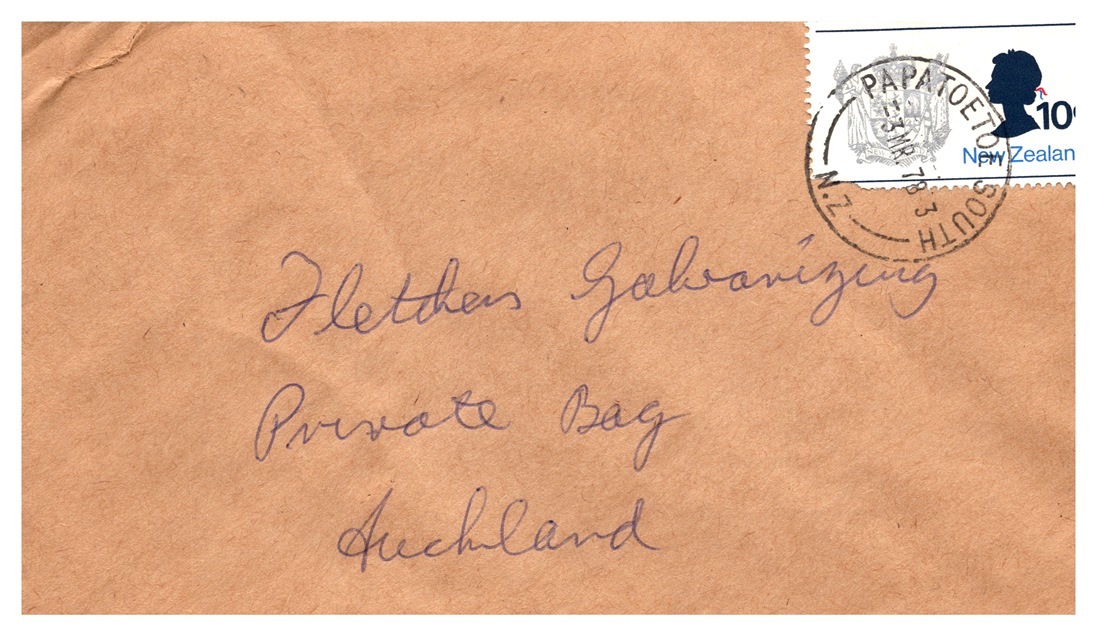 10c
New Zealan
PAPATOETOE SOUTH
3 MR 78 3
N.Z
Fletchers Galvanizing
Private Bag
Auckland